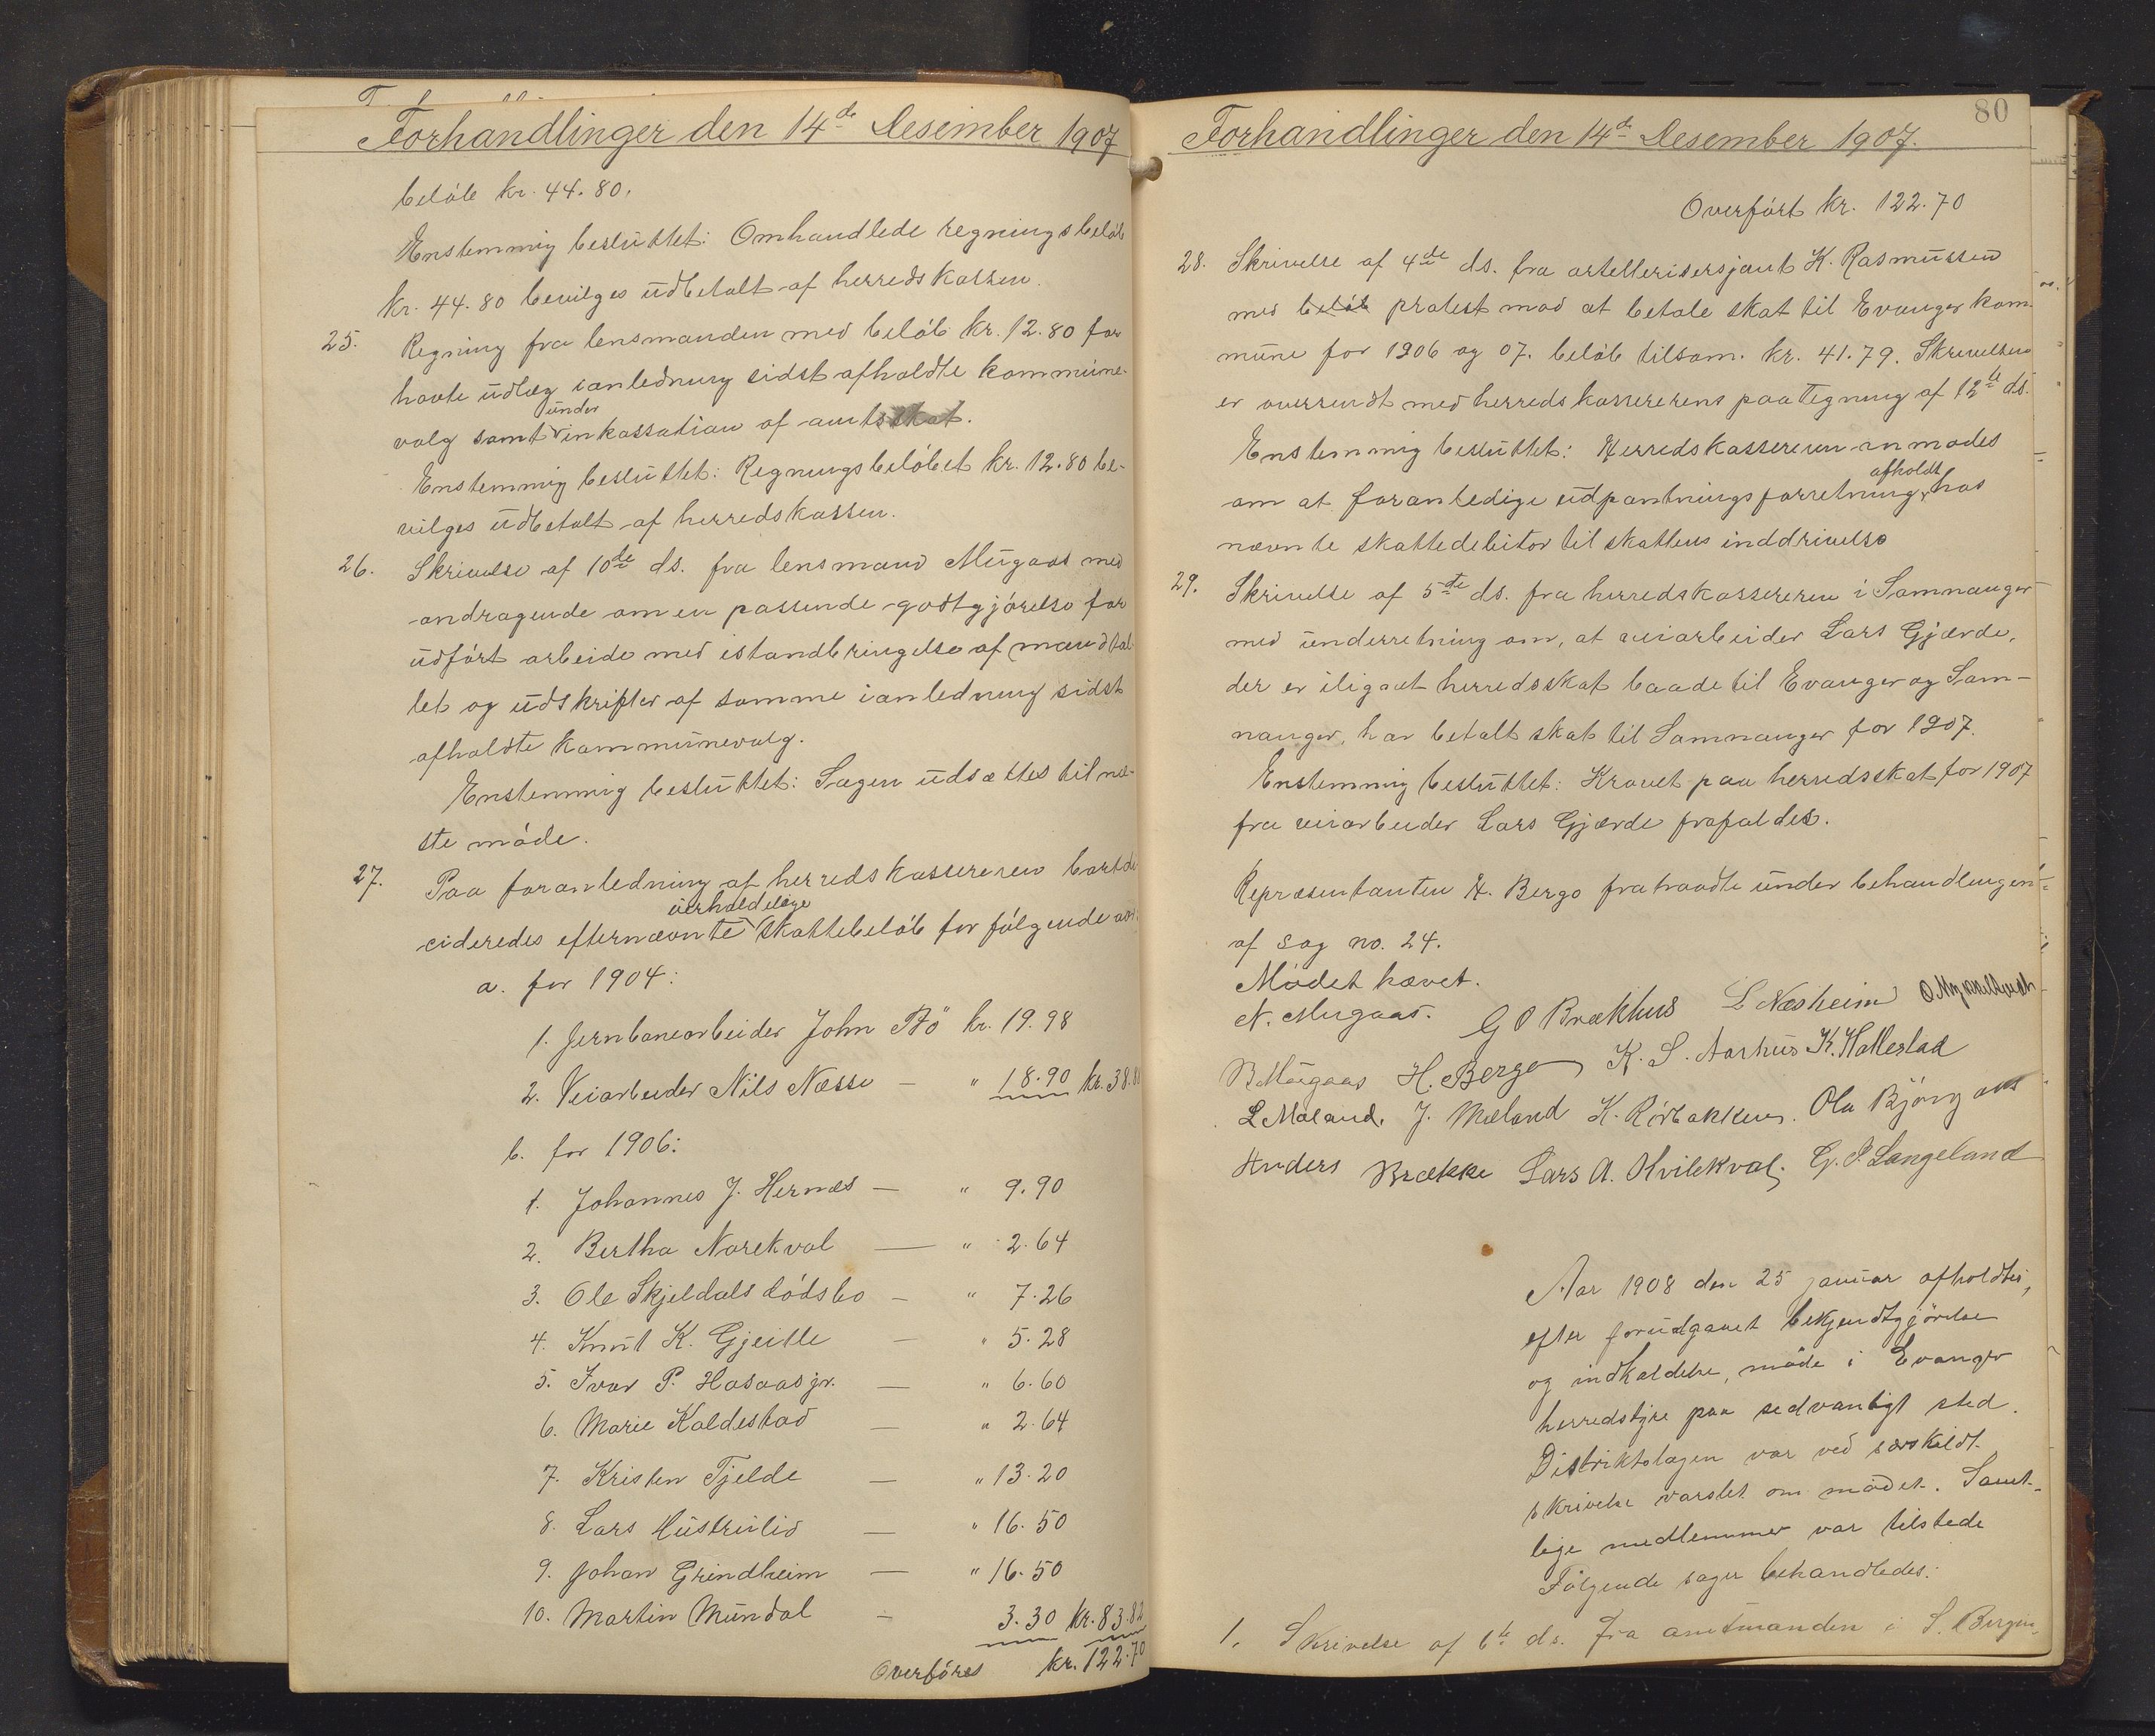 Forhandlinger den 14de Desember 1907
beløb kr. 44.80.
Enstemmig besluttet: Omhandlede regningsbeløb
kr. 44.80 bevilges udbetalt af herredskassen.
25. Regning fra lensmanden med beløb kr. 12.80 for
havte udlæg i anledning sidst afholdte kommune-
valg samt under inkassation af amtsskat.
Enstemmig besluttet: Regningsbeløbet kr. 12.80 be-
vilges udbetalt af herredskassen.
26. Skrivelse af 10de ds. fra lensmand Mugaas med
andragende om en passende godtgjørelse for
udført arbeide med istandbringelse af mandtal-
let og udskrifter af samme i anledning sidst
afholdte kommunevalg.
Enstemmig besluttet: Sagen udsættes til næ-
ste møde.
27. Paa foranledning af herredskassereren bortde-
cideredes efternævnte uerholdelige skattebeløb for følgende aar:
a. for 1904:
1. Jernbanearbeider John Bö kr. 19.98
2. Veiarbeider Nils Næsse — " 18.90 kr. 38.88
b. for 1906:
1. Johannes J. Hernæs — " 9.90
2. Bertha Narekval — " 2.64
3. Ole Skjeldals dødsbo — " 7.26
4. Knut K. Gjeitle — " 5.28
5. Ivar P. Hasaas jr. — " 6.60
6. Marie Kaldestad — " 2.64
7. Kristen Tjelde — " 13.20
8. Lars Hustrulid — " 16.50
9. Johan Grindheim — " 16.50
10. Martin Mundal — 3.30 kr. 83.82
Overføres kr. 122.70
80
Forhandlinger den 14de Desember 1907.
Overført kr. 122.70
28. Skrivelse af 4de ds. fra artellerisersjant K. Rasmussen
med beløb protest mod at betale skat til Evanger kom-
mune for 1906 og 07. beløb tilsam. kr. 41.79. Skrivelsen
er oversendt med herredskassererens paategning af 12te ds.
Enstemmig besluttet: Herredskassereren anmodes
om at foranledige udpantningsforretning afholdt hos
nævnte skattedebitor til skattens inddrivelse
29. Skrivelse af 5te ds. fra herredskassereren i Samnanger
med underretning om, at veiarbeider Lars Gjærde,
der er ilignet herredsskat baade til Evanger og Sam-
nanger, har betalt skat til Samnanger for 1907.
Enstemmig besluttet: Kravet paa herredsskat for 1907
fra veiarbeider Lars Gjærde frafaldes.
Repræsentanten H. Berge fratraadte under behandlingen
af sag no. 24.
Mødet hævet.
N. Mugaas. G O Brækhus L Næsheim
B Mugaas H. Berge K. S. Aarhus K. Hallestad
L Mæland. J. Mæland K. Rørbakken. Ola Bjørgaas
Anders Brække Lars A. Kvilekval. G. I. Langeland
Aar 1908 den 25 januar afholdtes,
efter forudgaaet bekjendtgjörelse
og indkaldelse, möde i Evanger
herredstyre paa sedvanligt sted.
Distriktslægen var ved særskildt
skrivelse varslet om mödet. Samt-
lige medlemmer var tilstede
Fölgende sager behandledes:
1. Skrivelse af 6te ds. fra amtmanden i S. Bergen-